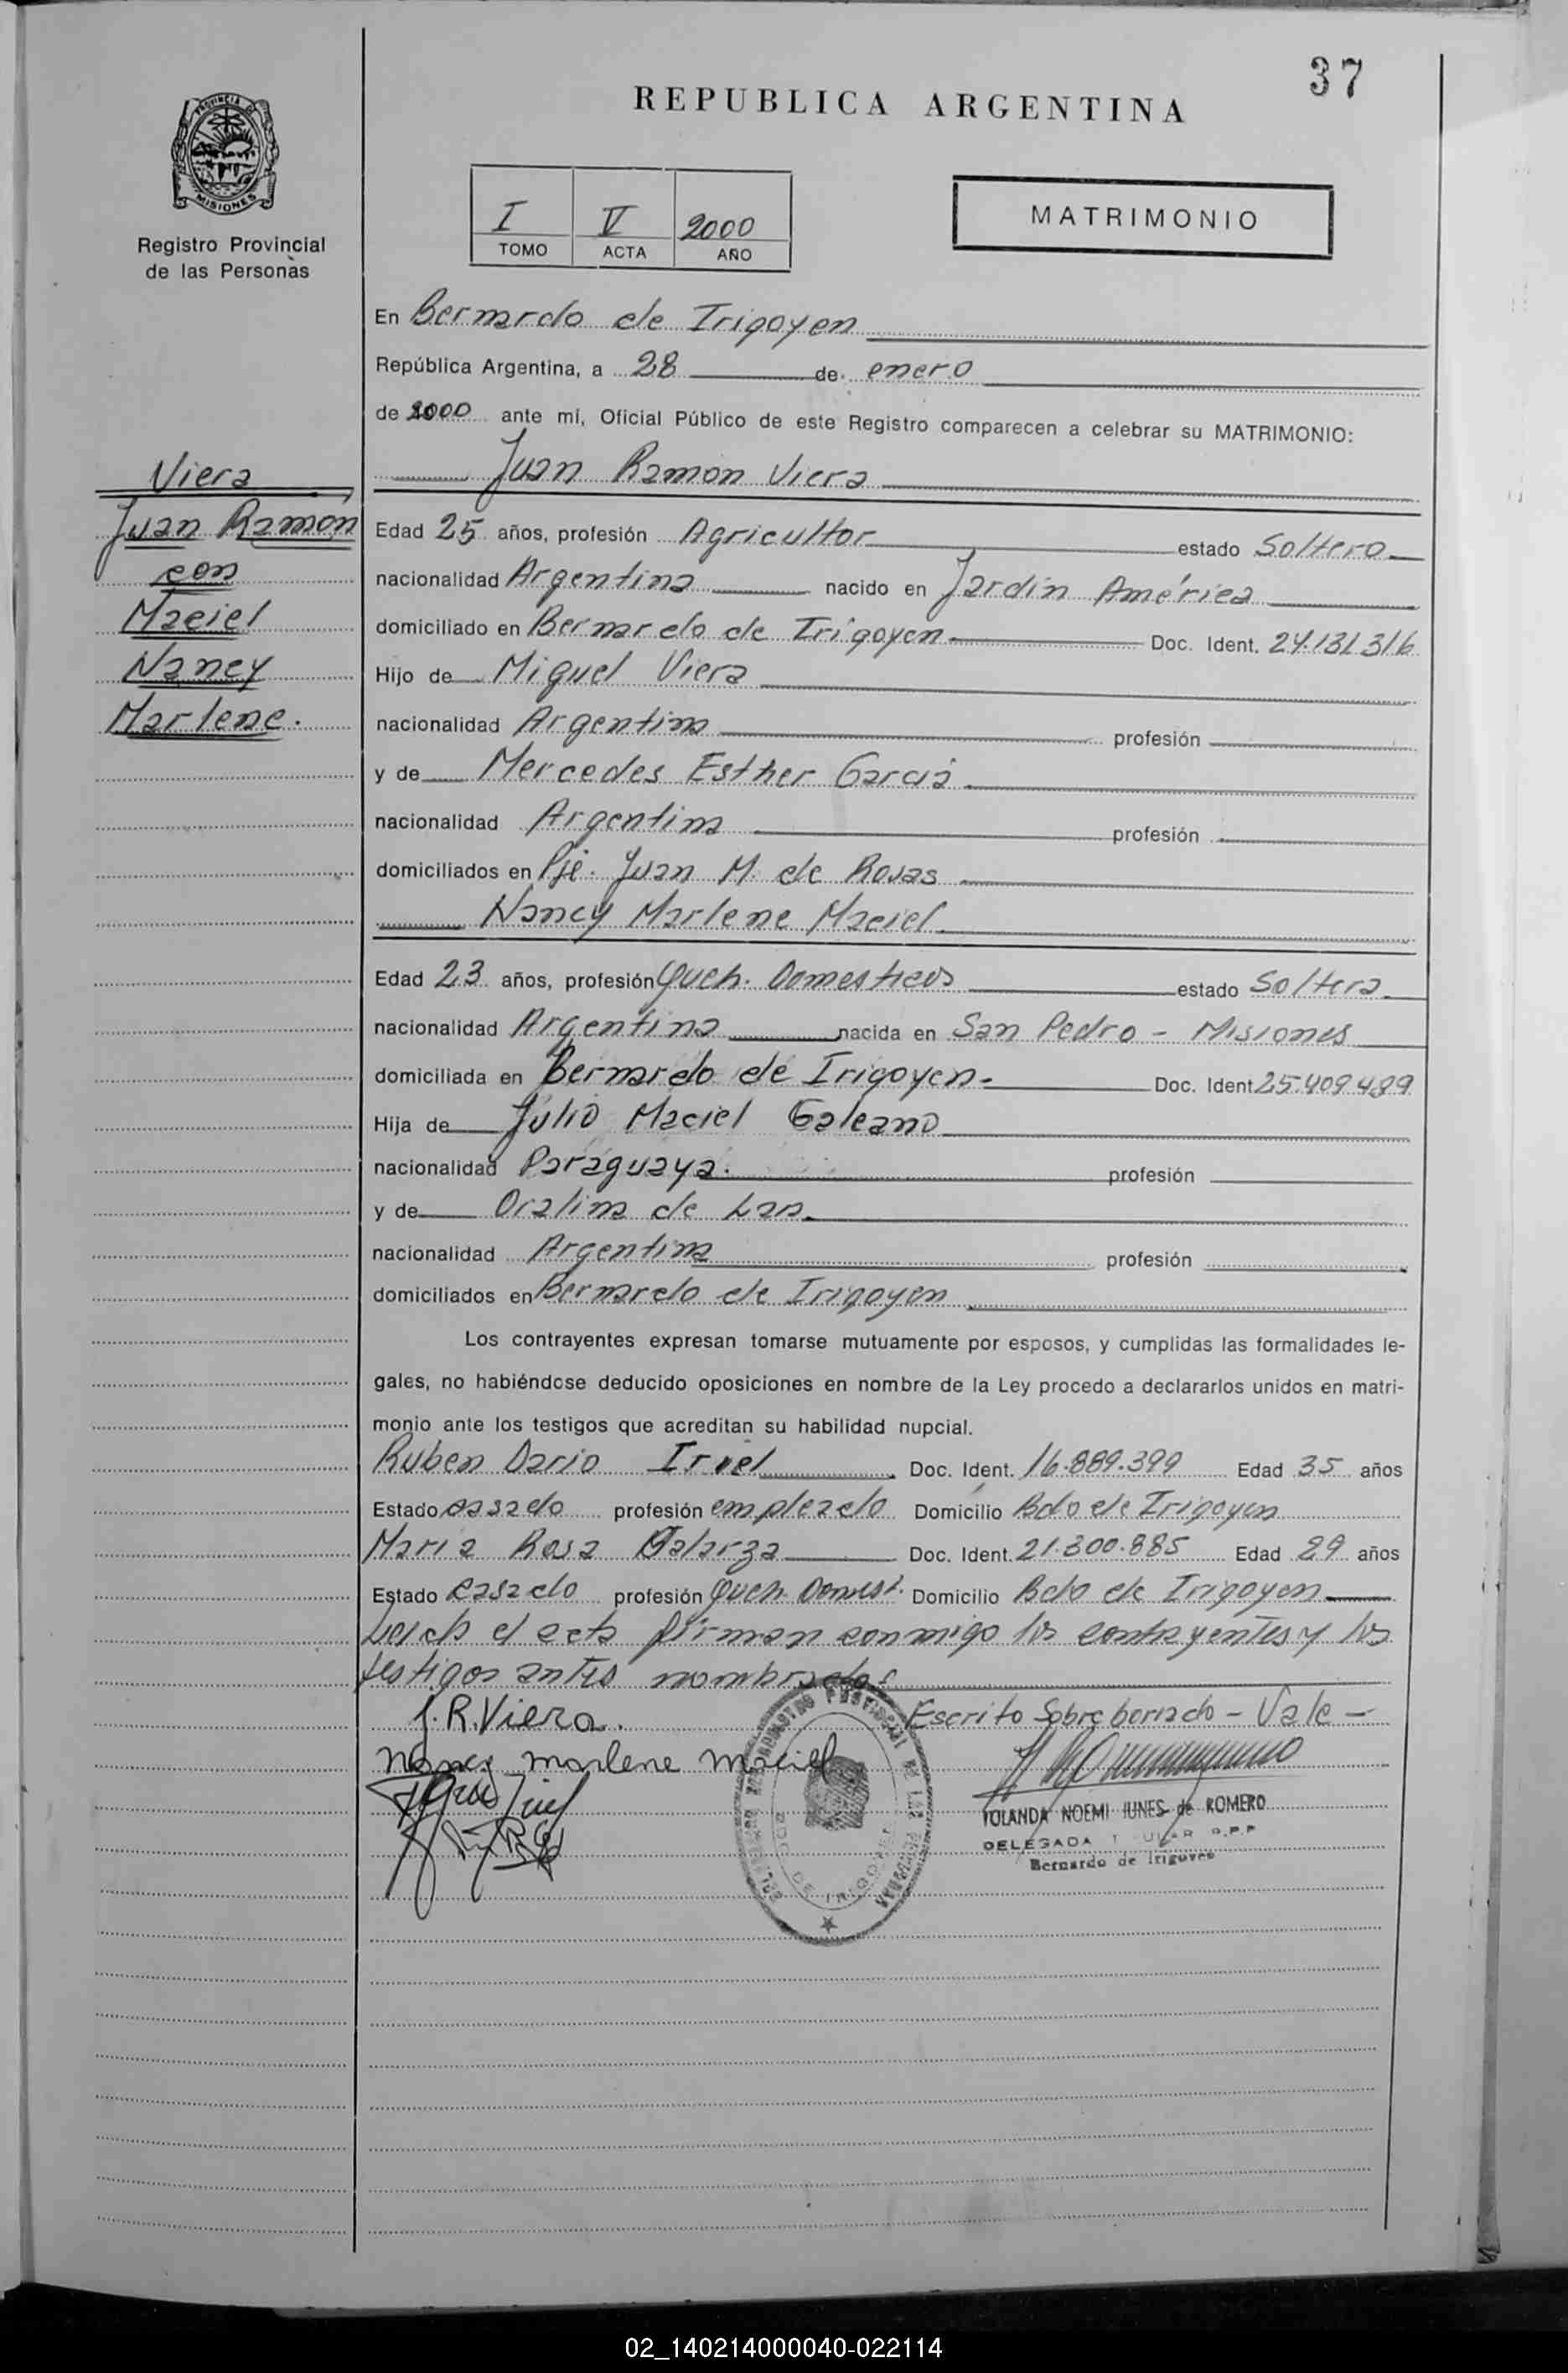 37
REPUBLICA ARGENTINA
PROVINCIA DE
MISIONES
Registro Provincial
de las Personas
I V 2000
TOMO ACTA AÑO
MATRIMONIO
En Bernardo de Irigoyen
República Argentina, a 28 de enero
de 2000 ante mí, Oficial Público de este Registro comparecen a celebrar su MATRIMONIO:
Juan Ramon Viera
Viera
Juan Ramón
con
Maciel
Nancy
Marlene.
Edad 25 años, profesión Agricultor estado Soltero
nacionalidad Argentina nacido en Jardín América
domiciliado en Bernardo de Irigoyen Doc. Ident. 24.131.316
Hijo de Miguel Viera
nacionalidad Argentina profesión
y de Mercedes Esther Garcia
nacionalidad Argentina profesión
domiciliados en Pje. Juan M. de Rosas
Nancy Marlene Maciel
Edad 23 años, profesión Queh. Domesticos estado Soltera
nacionalidad Argentina nacida en San Pedro - Misiones
domiciliada en Bernardo de Irigoyen- Doc. Ident. 25.409.489
Hija de Julio Maciel Galeano
nacionalidad Paraguaya. profesión
y de Oralina de
nacionalidad Argentina profesión
domiciliados en Bernardo de Irigoyen
Los contrayentes expresan tomarse mutuamente por esposos, y cumplidas las formalidades le-
gales, no habiéndose deducido oposiciones en nombre de la Ley procedo a declararlos unidos en matri-
monio ante los testigos que acreditan su habilidad nupcial.
Ruben Dario Doc. Ident. 16.889.399 Edad 35 años
Estado casado profesión empleado Domicilio Bdo de Irigoyen
Maria Rosa Galarza Doc. Ident. 21.300.885 Edad 29 años
Estado casado profesión Queh. Domest. Domicilio Bdo de Irigoyen
Leida el acta firman conmigo los contrayentes y los
testigos antes nombrados
J. R. Viera. Escrito Sobre borrado - Vale -
Nancy marlene maciel
YOLANDA NOEMI IUNES de ROMERO
DELEGADA
Bernardo de Irigoyen
02_140214000040-022114